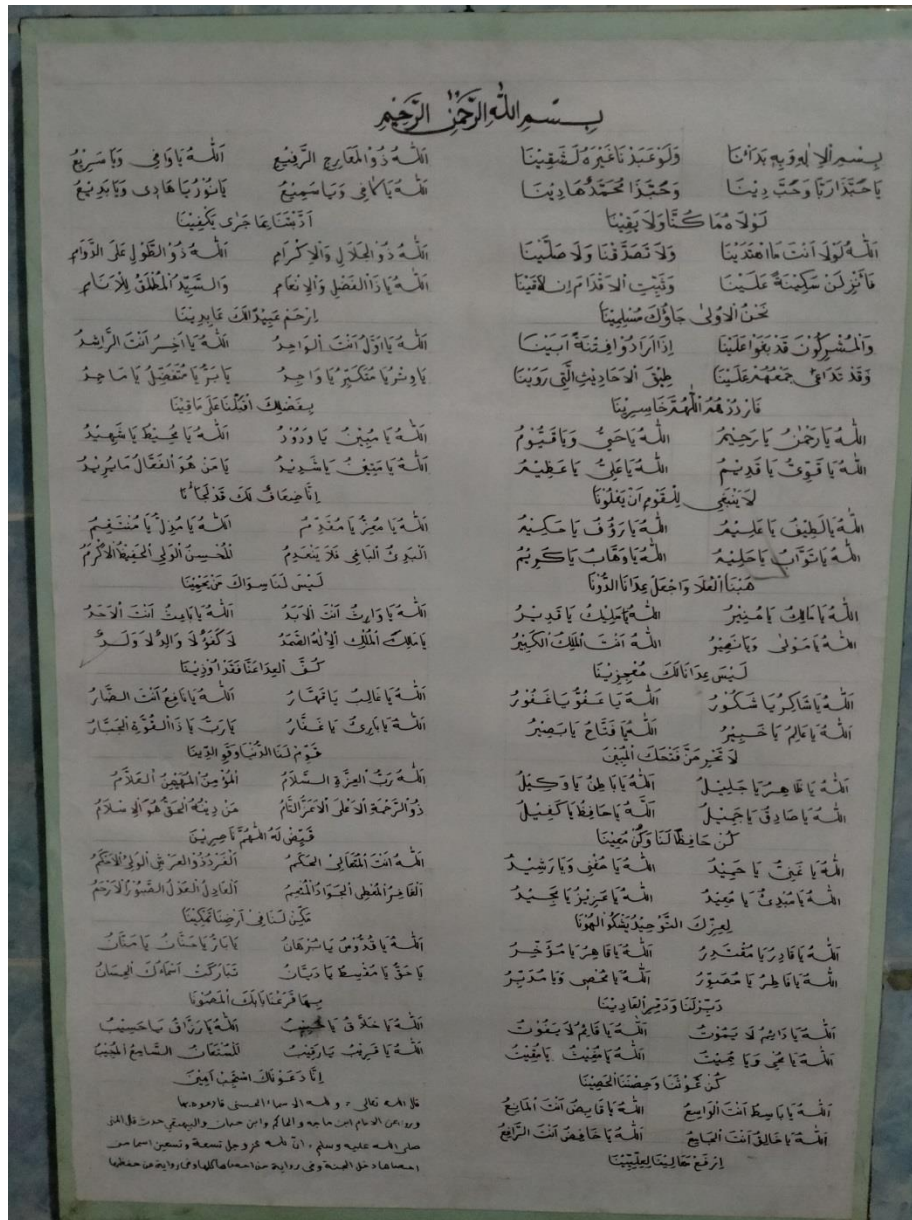 بِسْمِ اللهِ الرَّحْمٰنِ الرَّحِيْمِ
بِسْمِ الْإِلٰهِ وَبِهِ بَدَأْنَا وَلَوْ عَبَدْنَا غَيْرَهُ لَشَقِيْنَا
يَا حَبَّذَا رَبًّا وَحُبَّ دِيْنَا وَحَبَّذَا مُحَمَّدٌ هَادِيْنَا
لَوْلَاهُ مَا كُنَّا وَلَا بَقِيْنَا
اَللّٰهُ لَوْلَا اَنْتَ مَا اهْتَدَيْنَا وَلَا تَصَدَّقْنَا وَلَا صَلَّيْنَا
فَأَنْزِلَنْ سَكِيْنَةً عَلَيْنَا وَثَبِّتِ الْاَقْدَامَ اِنْ لَاقَيْنَا
نَحْنُ الْاُولٰى جَاؤُكَ مُسْلِمِيْنَا
وَالْمُشْرِكُوْنَ قَدْ بَغَوْا عَلَيْنَا اِذَا اَرَادُوْا فِتْنَةً اَبَيْنَا
وَقَدْ تَدَاعٰى جَمْعُهُمْ عَلَيْنَا طِبْقَ الْاَحَادِيْثِ الَّتِى رَوَيْنَا
فَارْدُدْهُمُ اللّٰهُمَّ خَاسِرِيْنَا
اَللّٰهُ يَا رَحْمٰنُ يَا رَحِيْمُ اَللّٰهُ يَا حَيُّ وَيَا قَيُّوْمُ
اَللّٰهُ يَا قَوِيُّ يَا قَدِيْمُ اَللّٰهُ يَا عَلِيُّ يَا عَظِيْمُ
لَا يَنْبَغِى لِلْقَوْمِ اَنْ يَعْلُوْنَا
اَللّٰهُ يَا لَطِيْفُ يَا عَلِيْمُ اَللّٰهُ يَا رَؤُفُ يَا حَكِيْمُ
اَللّٰهُ يَا تَوَّابُ يَا حَلِيْمُ اَللّٰهُ يَا وَهَّابُ يَا كَرِيْمُ
هَبْنَا الْعُلَا وَاجْعَلْ عِدَانَا الدُّوْنَا
اَللّٰهُ يَا مَالِكُ يَا مُنِيْرُ اَللّٰهُ يَا مَلِيْكُ يَا قَدِيْرُ
اَللّٰهُ يَا مَوْلٰى وَيَا نَصِيْرُ اَللّٰهُ اَنْتَ الْمَلِكُ الْكَبِيْرُ
لَيْسَ عِدَانَا لَكَ مُعْجِزِيْنَا
اَللّٰهُ يَا شَاكِرُ يَا شَكُوْرُ اَللّٰهُ يَا عَفُوُّ يَا غَفُوْرُ
اَللّٰهُ يَا عَالِمُ يَا خَبِيْرُ اَللّٰهُ يَا فَتَّاحُ يَا بَصِيْرُ
لَا تَحْرِمَنَّ فَتْحَكَ الْمُبِيْنَ
اَللّٰهُ يَا ظَاهِرُ يَا جَلِيْلُ اَللّٰهُ يَا بَاطِنُ يَا وَكِيْلُ
اَللّٰهُ يَا صَادِقُ يَا جَمِيْلُ اَللّٰهُ يَا حَافِظُ يَا كَفِيْلُ
كُنْ حَافِظًا لَنَا وَكُنْ مُعِيْنَا
اَللّٰهُ يَا غَنِيُّ يَا حَمِيْدُ اَللّٰهُ يَا مُغْنِى وَيَا رَشِيْدُ
اَللّٰهُ يَا مُبْدِئُ يَا مُعِيْدُ اَللّٰهُ يَا عَزِيْزُ يَا مَجِيْدُ
لِعِزِّكَ التَّوْحِيْدُ يَشْكُو الْهُوْنَا
اَللّٰهُ يَا قَادِرُ يَا مُقْتَدِرُ اَللّٰهُ يَا قَاهِرُ يَا مُؤَخِّرُ
اَللّٰهُ يَا فَاطِرُ يَا مُصَوِّرُ اَللّٰهُ يَا مُحْصِى وَيَا مُدَبِّرُ
دَبِّرْ لَنَا وَدَمِّرِ الْعَادِيْنَا
اَللّٰهُ يَا دَائِمُ لَا يَمُوْتُ اَللّٰهُ يَا قَائِمُ لَا يَفُوْتُ
اَللّٰهُ يَا مُحْيِى وَيَا مُمِيْتُ اَللّٰهُ يَا مُغِيْثُ يَا مُقِيْتُ
كُنْ غَوْثَنَا وَحِصْنَنَا الْحَصِيْنَا
اَللّٰهُ يَا بَاسِطُ اَنْتَ الْوَاسِعُ اَللّٰهُ يَا قَابِضُ اَنْتَ الْمَانِعُ
اَللّٰهُ يَا خَالِقُ اَنْتَ الْجَامِعُ اَللّٰهُ يَا خَافِضُ اَنْتَ الرَّافِعُ
اِرْفَعْ مَعَالِيْنَا لِعِلِّيِّيْنَا
اَللّٰهُ ذُو الْمَعَارِجِ الرَّفِيْعُ اَللّٰهُ يَا وَافِى وَيَا سَرِيْعُ
اَللّٰهُ يَا كَافِى وَيَا سَمِيْعُ يَا نُوْرُ يَا هَادِى وَيَا بَدِيْعُ
اَدَّبْتَنَا بِمَا جَرٰى يَكْفِيْنَا
اَللّٰهُ ذُو الْجَلَالِ وَالْاِكْرَامِ اَللّٰهُ ذُو الطَّوْلِ عَلَى الدَّوَامِ
اَللّٰهُ يَا ذَا الْفَضْلِ وَالْاِنْعَامِ وَالسَّيِّدُ الْمُطْلَقُ لِلْاَنَامِ
اِرْحَمْ عَبِيْدًا لَكَ عَابِدِيْنَا
اَللّٰهُ يَا اَوَّلُ اَنْتَ الْوَاحِدُ اَللّٰهُ يَا اٰخِرُ اَنْتَ الرَّاشِدُ
يَا وِتْرُ يَا مُتَكَبِّرُ يَا وَاجِدُ يَا بَرُّ يَا مُتَفَضِّلُ يَا مَاجِدُ
بِفَضْلِكَ اقْبَلْنَا عَلٰى مَا فِيْنَا
اَللّٰهُ يَا مُبِيْنُ يَا وَدُوْدُ اَللّٰهُ يَا مُحِيْطُ يَا شَهِيْدُ
اَللّٰهُ يَا مَتِيْنُ يَا شَدِيْدُ يَا مَنْ هُوَ الْفَعَّالُ مَا يُرِيْدُ
اِنَّا ضِعَافٌ لَكَ قَدْ لَجَأْنَا
اَللّٰهُ يَا مُعِزُّ يَا مُقَدِّمُ اَللّٰهُ يَا مُذِلُّ يَا مُنْتَقِمُ
اَلْبَدِئُ الْبَاقِى فَلَا يَنْعَدِمُ اَلْمُحْسِنُ الْوَلِيُّ الْحَفِيْظُ الْاَكْرَمُ
لَيْسَ لَنَا سِوَاكَ مَنْ يَحْمِيْنَا
اَللّٰهُ يَا وَارِثُ اَنْتَ الْاَبَدُ اَللّٰهُ يَا بَاعِثُ اَنْتَ الْاَحَدُ
يَا مَالِكَ الْمُلْكِ الْاِلٰهُ الصَّمَدُ لَا كُفْؤُ لَا وَالِدُ لَا وَلَدُ
كُفَّ الْعِدَا عَنَّا فَقَدْ اُوْذِيْنَا
اَللّٰهُ يَا غَالِبُ يَا قَهَّارُ اَللّٰهُ يَا نَافِعُ اَنْتَ الضَّارُ
اَللّٰهُ يَا بَارِئُ يَا غَفَّارُ يَا رَبُّ يَا ذَا الْقُوَّةِ الْجَبَّارُ
قَوِّمْ لَنَا الدُّنْيَا وَقَوِّ الدِّيْنَا
اَللّٰهُ رَبُّ الْعِزَّةِ السَّلَامُ اَلْمُؤْمِنُ الْمُهَيْمِنُ الْعَلَّامُ
ذُو الرَّحْمَةِ الْاَعْلَى الْاَعَزُّ التَّامُ مَنْ دِيْنُهُ الْحَقُّ هُوَ الْاِسْلَامُ
قَيِّضْ لَهُ اللّٰهُمَّ نَاصِرِيْنَ
اَللّٰهُ اَنْتَ الْمُتَعَالِى الْحَكَمُ اَلْفَرْدُ ذُو الْعَرْشِ الْوَلِيُّ الْاَحْكَمُ
اَلْغَافِرُ الْمُعْطِى الْجَوَادُ الْمُنْعِمُ اَلْعَادِلُ الْعَدْلُ الصَّبُوْرُ الْاَرْحَمُ
مَكِّنْ لَنَا فِى اَرْضِنَا تَمْكِيْنَا
اَللّٰهُ يَا قُدُّوْسُ يَا بُرْهَانُ يَا بَارُّ يَا حَنَّانُ يَا مَنَّانُ
يَا حَقُّ يَا مُقْسِطُ يَا دَيَّانُ تَبَارَكَتْ اَسْمَاءُكَ الْحِسَانُ
بِهَا قَرَعْنَا بَابَكَ الْمَصُوْنَا
اَللّٰهُ يَا خَلَّاقُ يَا مُنِيْبُ اَللّٰهُ يَا رَزَّاقُ يَا حَسِيْبُ
اَللّٰهُ يَا قَرِيْبُ يَا رَقِيْبُ اَلْمُسْتَعَانُ السَّامِعُ الْمُجِيْبُ
اِنَّا دَعَوْنَاكَ اسْتَجِبْ اٰمِيْنَ
قال الله تعالى : ولله الاسماء الحسنى فادعوه بها
وروى عن الامام ابن ماجه والحاكم وابن حبان والبيهقي حديث قال النبى
صلى الله عليه وسلم : انّ لله عز وجل تسعة وتسعين اسما من
احصاها دخل الجنة وفى رواية من احصاها كلها وفى رواية من حفظها